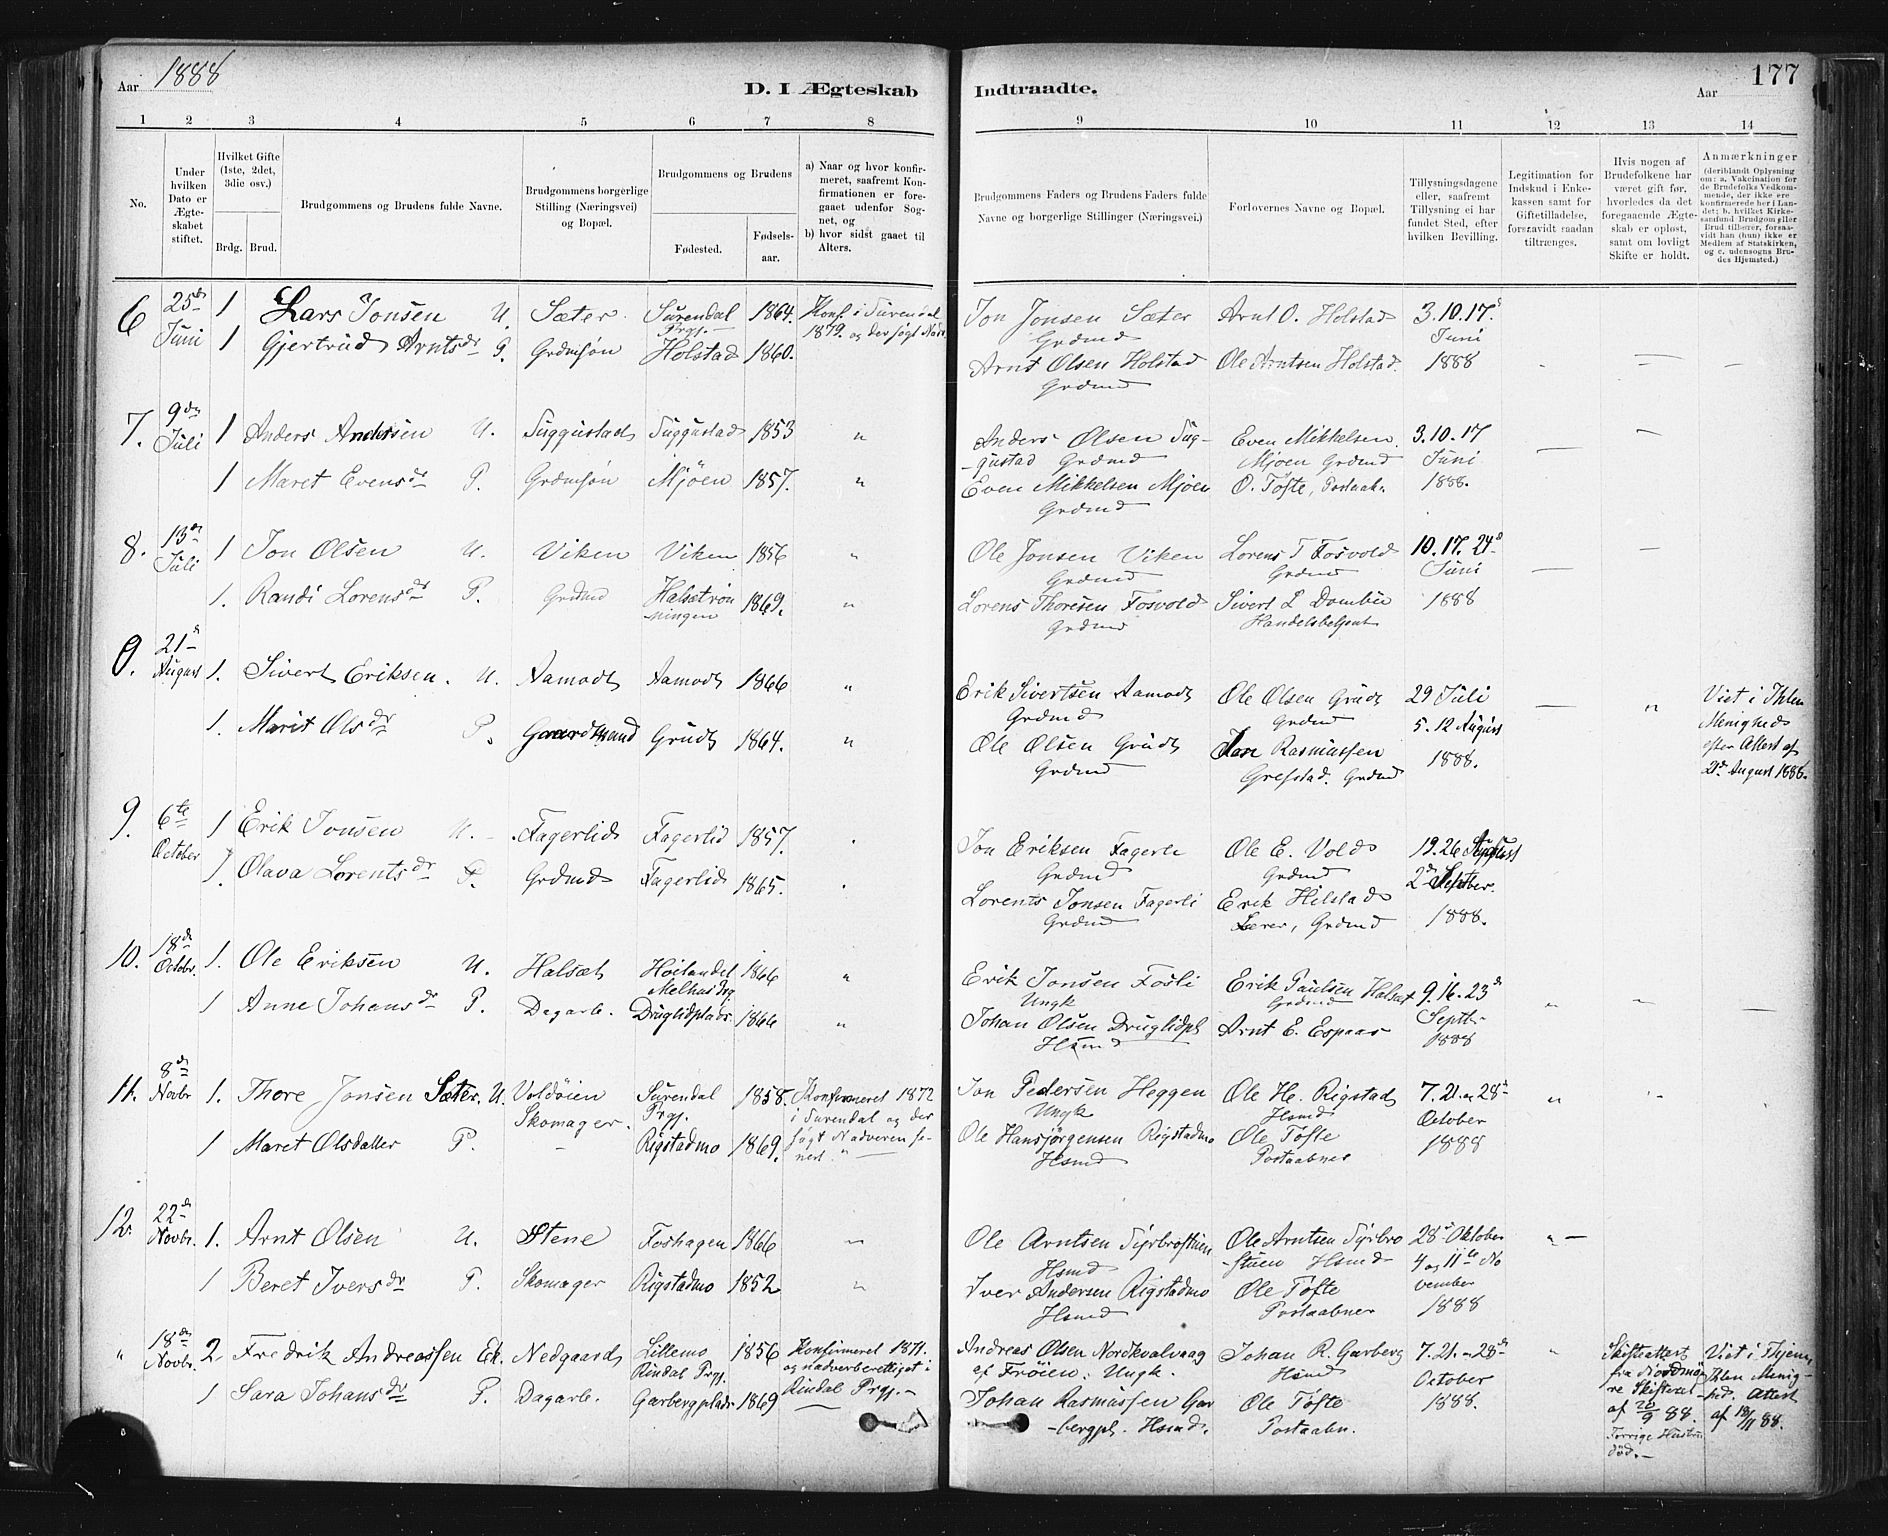 Aar 1888
D. I Ægteskab
Indtraadte.
Aar
177
1 2 3 4 5 6 7 8
9 10 11 12 13 14
No.
Under hvilken Dato er Ægteskabet stiftet.
Hvilket Gifte (1ste, 2det, 3die osv.)
Brdg. Brud.
Brudgommens og Brudens fulde Navne.
Brudgommens borgerlige Stilling (Næringsvei) og Bopæl.
Brudgommens og Brudens
Fødested.
Fødselsaar.
a) Naar og hvor konfirmeret, saafremt Konfirmationen er foregaaet udenfor Sognet, og
b) hvor sidst gaaet til Alters.
Brudgommens Faders og Brudens Faders fulde Navne og borgerlige Stillinger (Næringsvei.)
Forlovernes Navne og Bopæl.
Tillysningsdagene eller, saafremt Tillysning ei har fundet Sted, efter hvilken Bevilling.
Legitimation for Indskud i Enkekassen samt for Giftetilladelse, forsaavidt saadan tiltrænges.
Hvis nogen af Brudefolkene har været gift før, hvorledes da det foregaaende Ægteskab er opløst, samt om lovligt Skifte er holdt.
Anmærkninger (deriblandt Oplysning om: a. Vakcination for de Brudefolks Vedkommende, der ikke ere konfirmerede her i Landet; b. hvilket Kirkesamfund Brudgom eller Brud tilhører, forsaavidt han (hun) ikke er Medlem af Statskirken, og c. udensogns Brudes Hjemsted.)
6 25de Juni 1 Lars Jonsen U. Sæter Surendal Prgj. 1864. Konf. i Surendal 1879. og der søgt Nadv.
1 Gjertrud Arntsdr P. Grdmsøn Holstad 1860.
Jon Jonsen Sæter Grdmd Arnt O. Holstad 3.10.17. Juni 1888
Arnt Olsen Holstad Grdmd Ole Arntsen Holstad.
7. 9de Juli 1 Anders Andersen U. Tuggustad Tuggustad 1853 "
1 Maret Evensdr P. Grdmsøn Mjöen 1857. "
Anders Olsen Tuggustad Grdmd Even Mikkelsen Mjoen Grdmd 3.10.17 Juni 1888.
Even Mikkelsen Mjöen Grdmd O. Tøfte, Postaab.
8. 13de Juli 1 Jon Olsen U. Viken Viken 1856 "
1. Randi Lorensdr P. Grdmd 1869. "
Ole Jonsen Viken Grdmd Lorens T Fosvold Grdmd 10.17.24 Juni 1888
Lorens Thoresen Fosvold Grdmd Sivert L Dombu
0. 21de August 1. Sivert Eriksen. U. Aamodt Aamodt 1866 "
1. Marit Olsdr P. Gaardmand Grudt 1864. "
Erik Sivertsen Aamodt Grdmd Ole Olsen Grudt Grdmd 29 Juli 5. 12 August 1888. "
Viet i Ihlen Menighed efter Attest af 21de August 1888.
Ole Olsen Grudt Grdmd Rasmussen Grefstad. Grdmd
9. 6te October 1 Erik Jonsen U. Fagerlid Fagerlid 1857.
1. Olava Lorentsdr P. Grdmd Fagerlid 1865.
Jon Eriksen Fagerli Grdmd Ole E. Vold Grdmd 19.26 August 2d September. 1888.
Lorents Jonsen Fagerli Grdmd Erik Hilstad Lærer, Grdmd
10. 18de Octobr. 1. Ole Eriksen U. Halsæt Høilandet Melhus Prg 1866 "
1 Anne Johansdr P. Dagarb. Druglidplads 1866 "
Erik Jonsen Fosli Ungk Erik Paulsen Halsæt Grdmd 9.16.23de Septbr 1888 "
Johan Olsen Druglidpl Hsmd Arnt E. Espaas
11. 8de Novbr 1. Thore Jonsen Sæter. U. Voldöien Skomager. Surendal Prgj. 1858. Konfirmeret 1872 i Surendal og der søgt Nadveren senest.
1 Maret Olsdatter P. Rigstadmo 1869. "
Jon Pedersen Heggen Ungk Ole H. Rigstad Hsmd 7.21. og 28de October 1888
Ole Hansjørgensen Rigstadmo Hsmd Ole Tøfte Postaabner
12. 22de Novbr. 1. Arnt Olsen U. Stene Foshagen 1866 "
1 Beret Iversdr P. Skomager Rigstadmo 1852 "
Ole Arntsen Hsmd Ole Arntsen Hsmd 28de Oktober 4 og 11te November 1888
Iver Andersen Rigstadmo Hsmd Ole Tøfte Postaabner
" 18de Novbr. 2 Fredrik Andreassen Ek. Nedgaard Lillemo Rindal Prgj. 1856 Konfirmeret 1871. og nadverberettiget i Rindal Prgj.
1 Sara Johansdr P. Dagarb. Garbergplads 1869
Andreas Olsen Nordkvalvaag af Frøien. Ungk. Johan R. Garberg Hsmd 7. 21. 28de October 1888.
Skifteattest fra Nordmøre Skifteret af 28/9 88. Forrige Hustru død.
Viet i Ihlen Menighed. Attest af 18/11 88.
Johan Rasmussen Garbergpl. Hsmd. Ole Tøfte Postaabn.